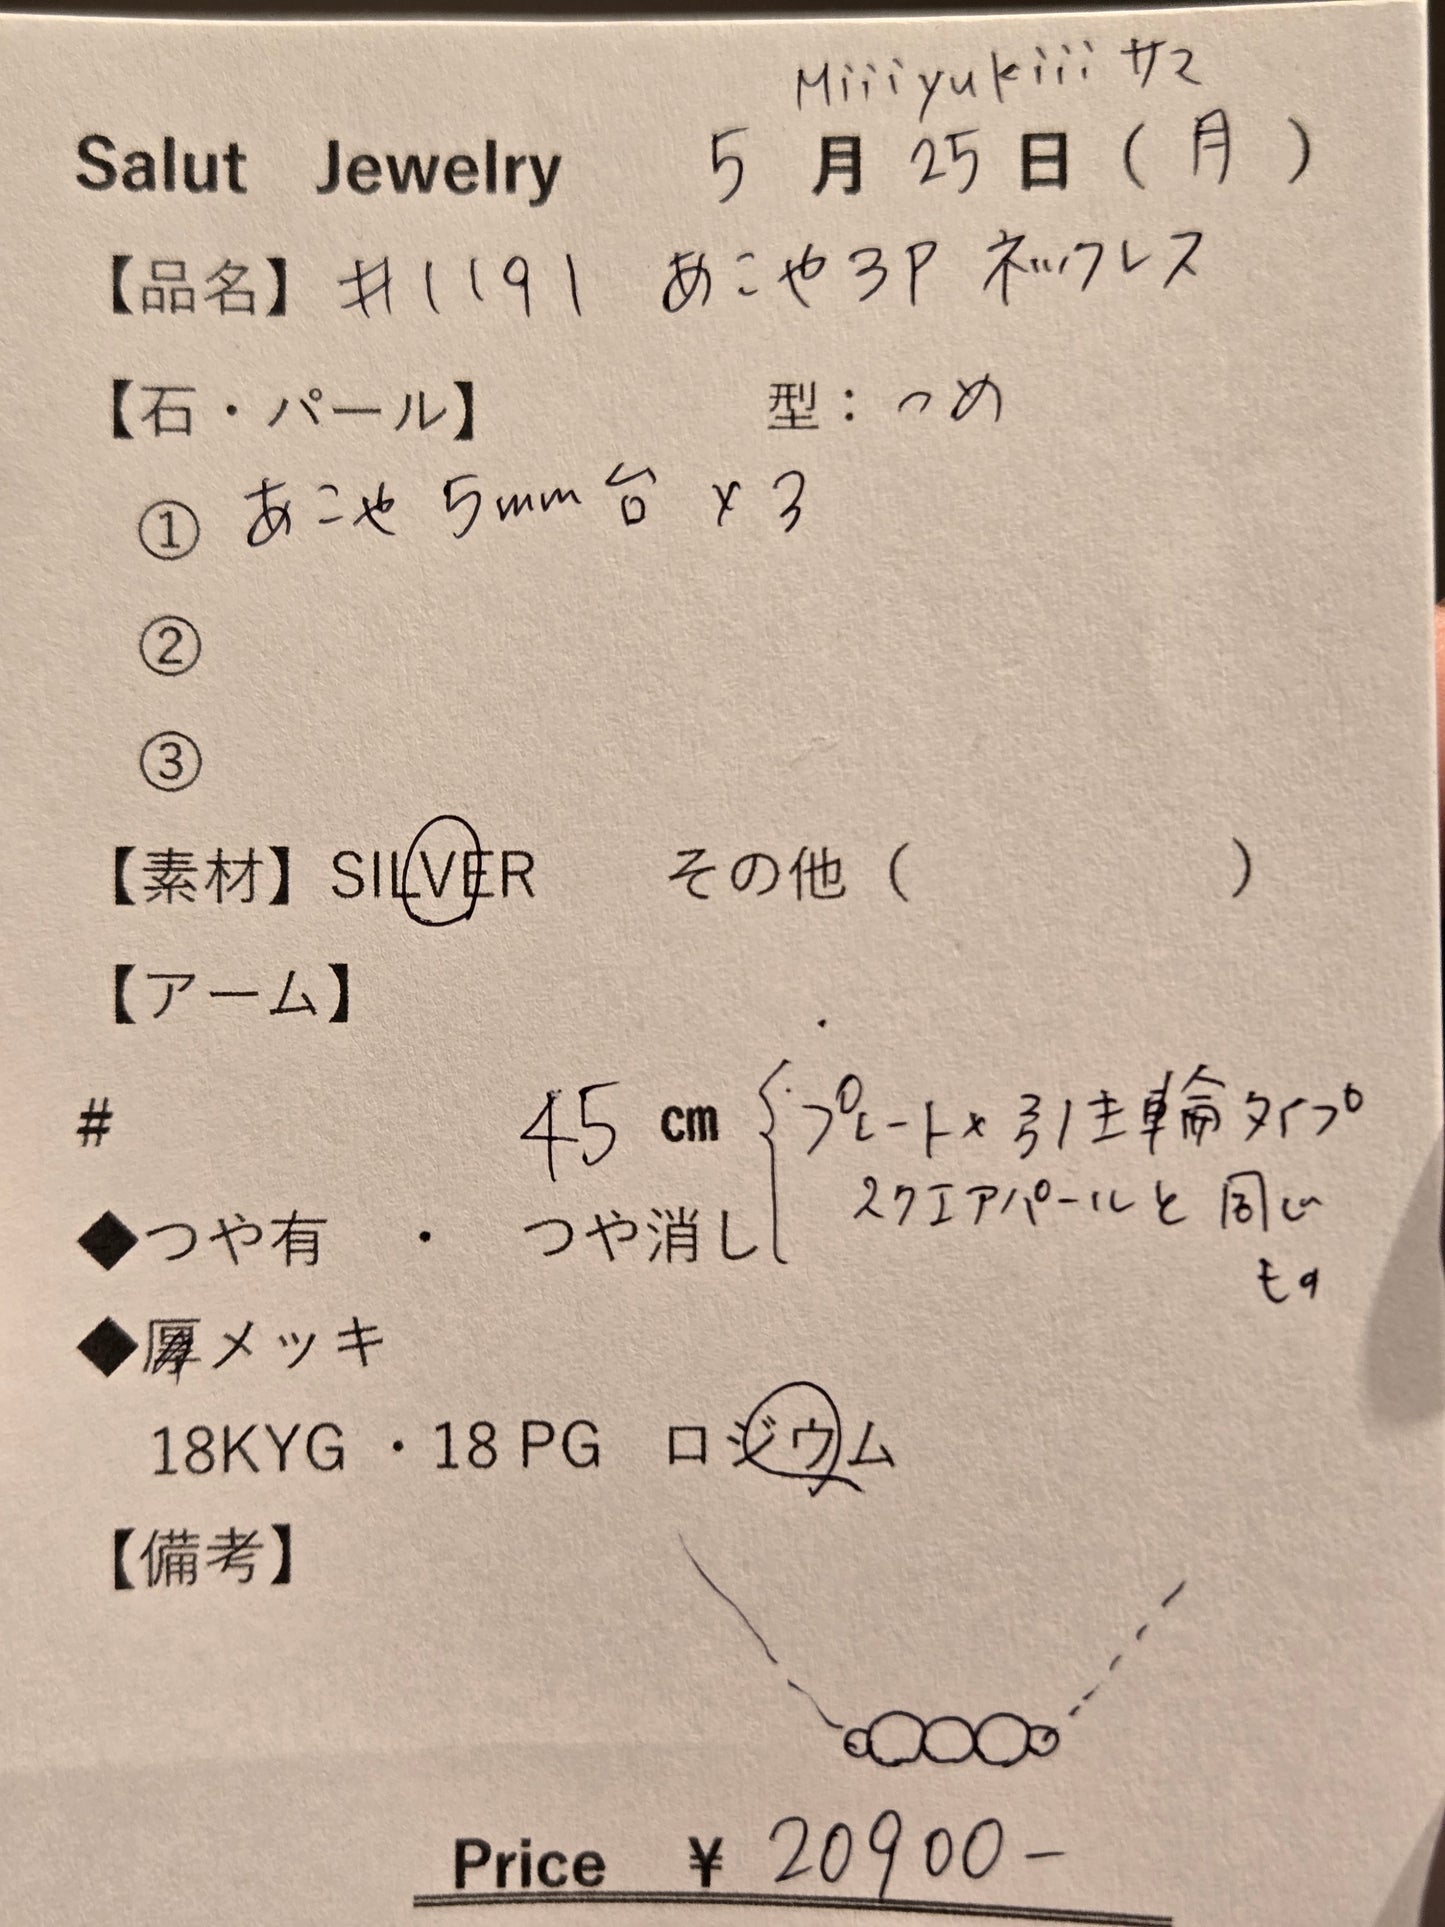 Miiiyukiii サマ
Salut Jewelry 5 月 25 日 ( 月 )
【品名】 #1191 あこや3P ネックレス
【石・パール】 型：つめ
① あこや 5mm台 × 3
②
③
【素材】 SILVER その他 ( )
【アーム】
# 45 cm { プレート× 引き輪タイプ
スクエアパールと 同じ
もの
◆つや有 ・ つや消し
◆厚メッキ
18KYG ・18 PG ロジウム
【備考】
Price ¥ 20900-